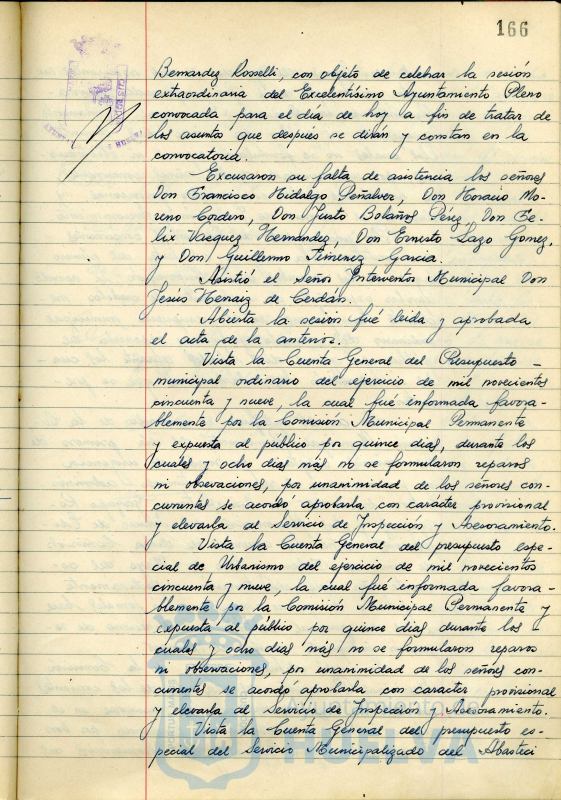 166
Bernardez Rosselli, con objeto de celebrar la sesión
extraordinaria del Excelentísimo Ayuntamiento Pleno
convocada para el día de hoy a fin de tratar de
los asuntos que después se dirán y constan en la
convocatoria.
Excusaron su falta de asistencia los señores
Don Francisco Hidalgo Peñalver, Don Horacio Mo-
reno Cordero, Don Justo Bolaños Perez, Don Fe-
lix Vazquez Hernandez, Don Ernesto Lazo Gomez,
y Don Guillermo Jimenez Garcia.
Asistió el Señor Interventor Municipal Don
Jesús Hernaiz de Cerdán.
Abierta la sesión fué leida y aprobada
el acta de la anterior.
Vista la Cuenta General del Presupuesto
municipal ordinario del ejercicio de mil novecientos
cincuenta y nueve, la cual fué informada favora-
blemente por la Comisión Municipal Permanente
y expuesta al público por quince dias, durante los
cuales y ocho dias más no se formularon reparos
ni observaciones, por unanimidad de los señores con-
currentes se acordó aprobarla con carácter provisional
y elevarla al Servicio de Inspección y Asesoramiento.
Vista la Cuenta General del presupuesto espe-
cial de Urbanismo del ejercicio de mil novecientos
cincuenta y nueve, la cual fué informada favora-
blemente por la Comisión Municipal Permanente y
expuesta al público por quince dias durante los
cuales y ocho dias más no se formularon reparos
ni observaciones, por unanimidad de los señores con-
currentes se acordó aprobarla con caracter provisional
y elevarla al Servicio de Inspección y Asesoramiento.
Vista la Cuenta General del presupuesto es-
pecial del Servicio Municipalizado del Abasteci